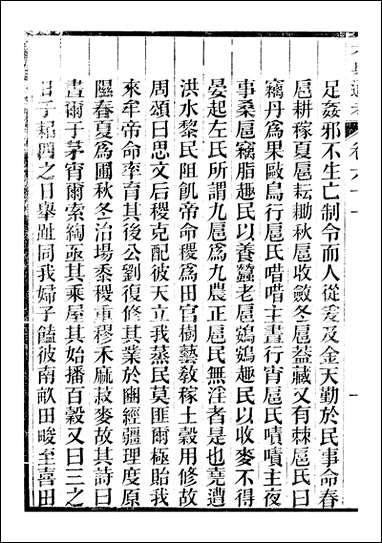 足姦邪不生亡制令而人從爰及金天勤於民事命春
扈耕稼夏扈耘耡秋扈收斂冬扈葢藏又有棘扈民曰
竊丹爲果敺鳥行扈民唶唶主晝行宵扈民嘖嘖主夜
事桑扈竊脂趣民以養蠶老扈鷃鷃趣民以收麥不得
晏起左氏所謂九扈爲九農正扈民無淫者是也堯遭
洪水黎民阻飢帝命稷爲田官樹藝敎稼土穀用修故
周頌曰思文后稷克配彼天立我蒸民莫匪爾極貽我
來牟帝命率育其後公劉復修其業於豳經疆理度原
隰春夏爲圃秋冬治場黍稷重穋禾麻菽麥故其詩曰
晝爾于茅宵爾索綯亟其乗屋其始播百穀又曰三之
日于耜四之日擧趾同我婦子饁彼南畝田畯至喜田